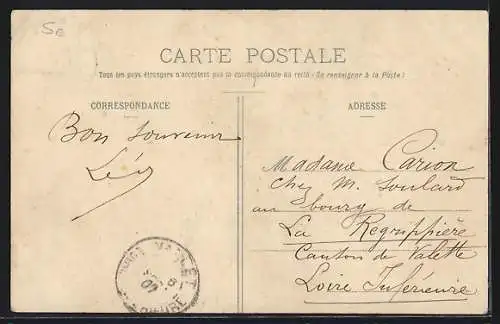 5e
CARTE POSTALE
Tous les pays étrangers n'acceptent pas la correspondance au recto (Se renseigner à la Poste)
CORRESPONDANCE
ADRESSE
Bon souvenir
Madame Carion
chez M. Soulard
au bourg de
La Regrippière
Canton de Valette
Loire Inférieure